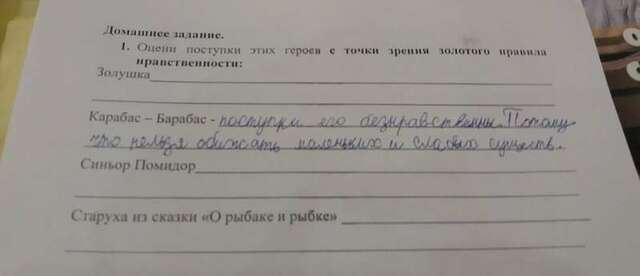 Домашнее задание.
1. Оцени поступки этих героев с точки зрения золотого правила
нравственности:
Золушка
Карабас – Барабас - поступки его безнравственны. Потому
что нельзя обижать маленьких и слабых существ.
Синьор Помидор
Старуха из сказки «О рыбаке и рыбке»